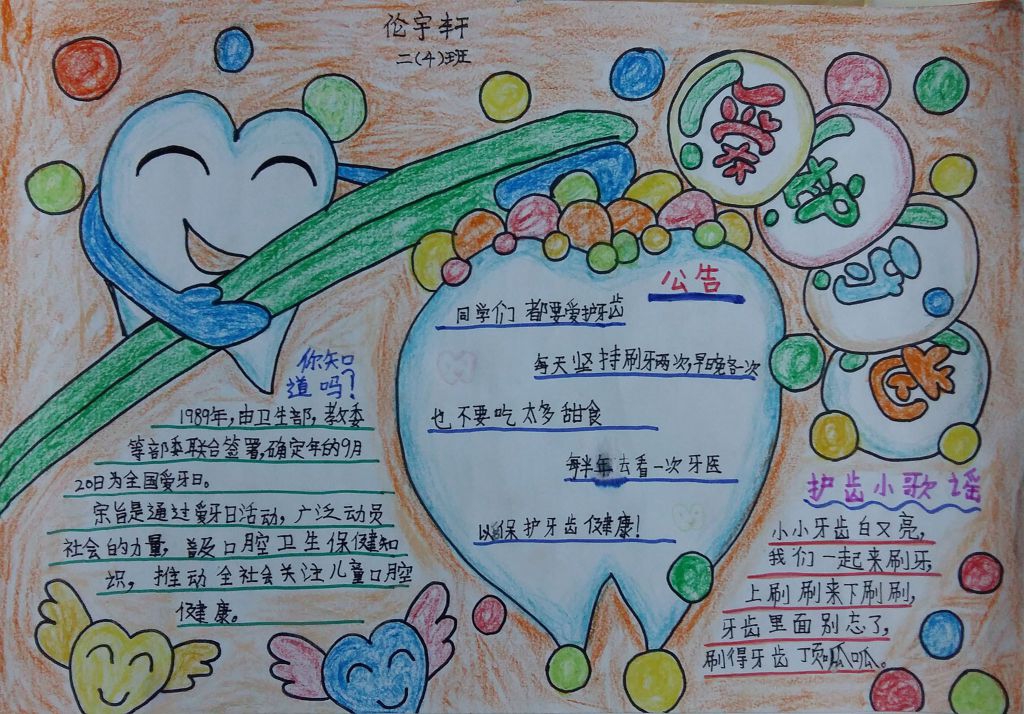 伦宇轩
二(4)班
爱护牙齿
公告
同学们都要爱护牙齿
每天坚持刷牙两次,早晚各一次
也不要吃太多甜食
每半年去看一次牙医
以保护牙齿健康!
你知
道吗?
1989年,由卫生部,教委
等部委联合签署,确定年的9月
20日为全国爱牙日。
宗旨是通过爱牙日活动,广泛动员
社会的力量,普及口腔卫生保健知
识,推动全社会关注儿童口腔
健康。
护齿小歌谣
小小牙齿白又亮,
我们一起来刷牙,
上刷刷来下刷刷,
牙齿里面别忘了,
刷得牙齿顶呱呱。